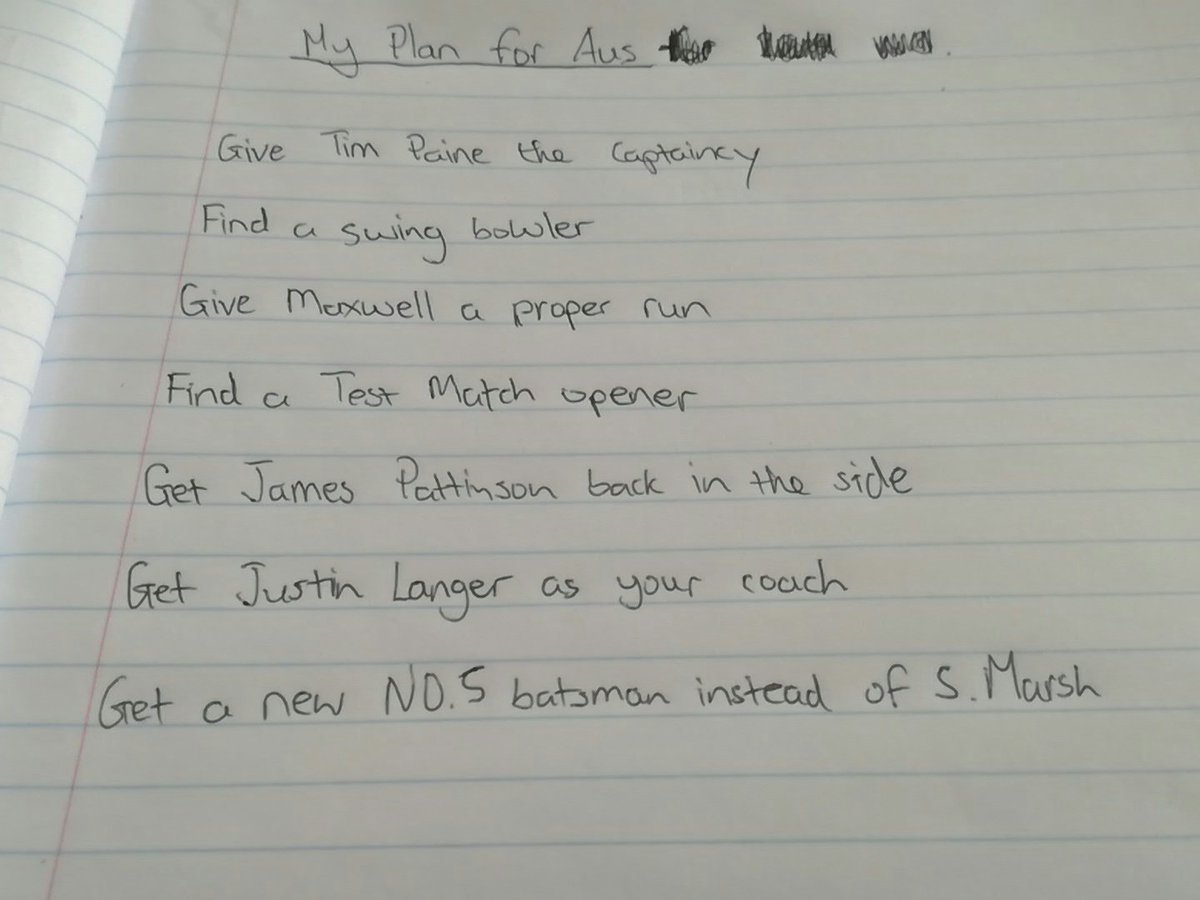 My Plan for Aus
Give Tim Paine the Captaincy
Find a swing bowler
Give Maxwell a proper run
Find a Test Match opener
Get James Pattinson back in the side
Get Justin Langer as your coach
Get a new NO.5 batsman instead of S. Marsh